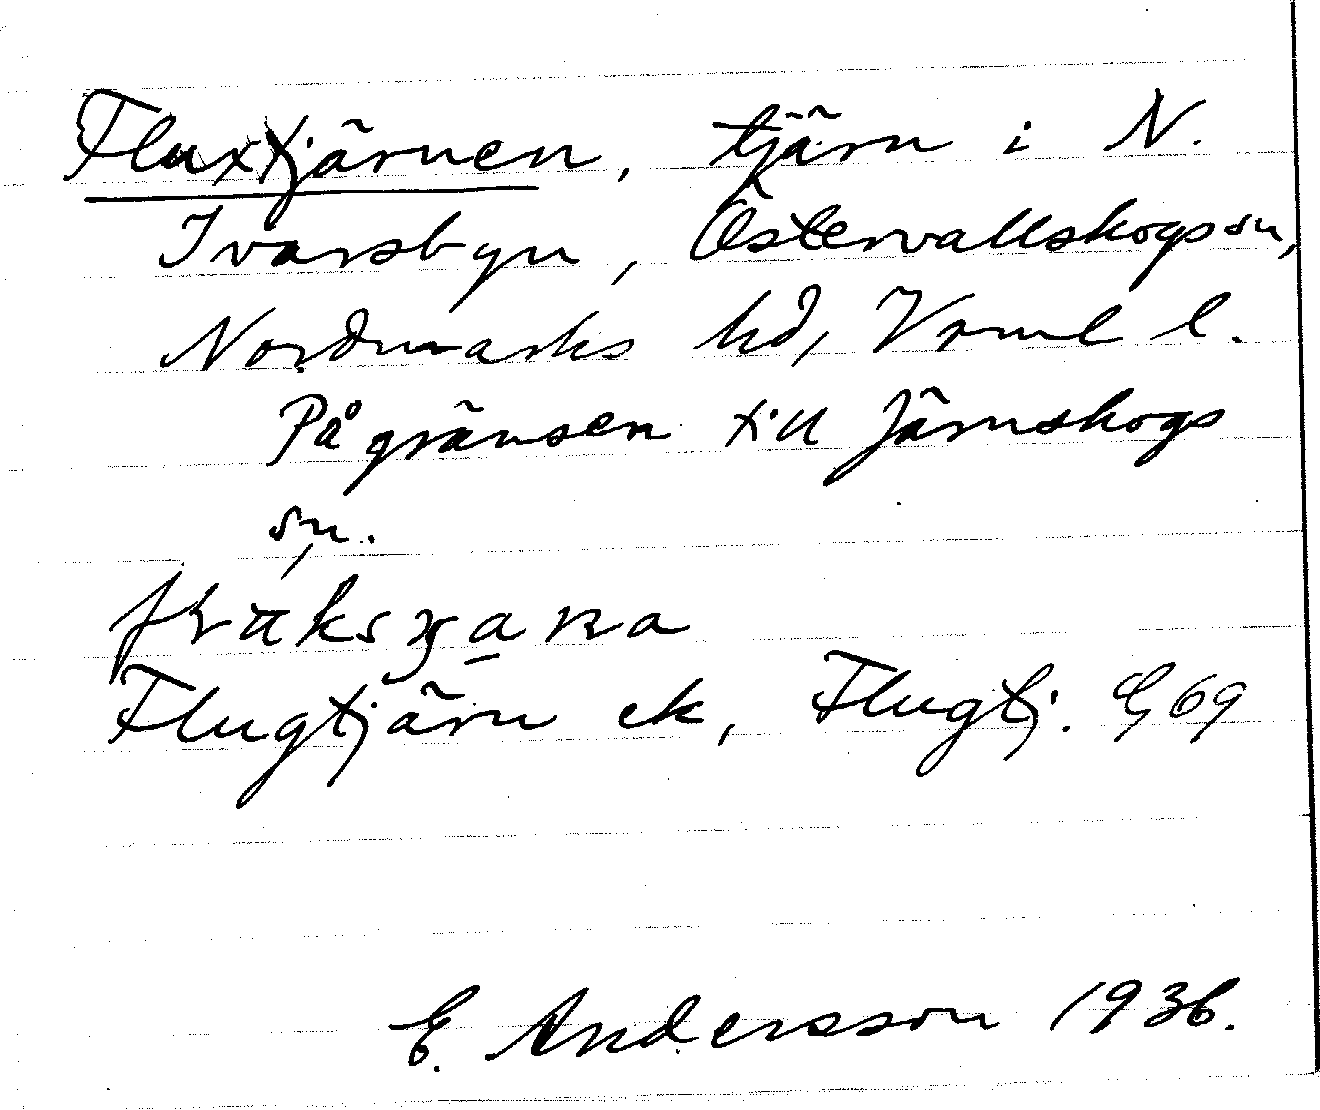 Fluxtjärnen, tjärn i N.
Ivarsbyn, Östervallskogs sn,
Nordmarks hd, Vrml l.
På gränsen till Järnskogs
sn.
Flugtjärn ek, Flugtj. G 69
E. Andersson 1936.